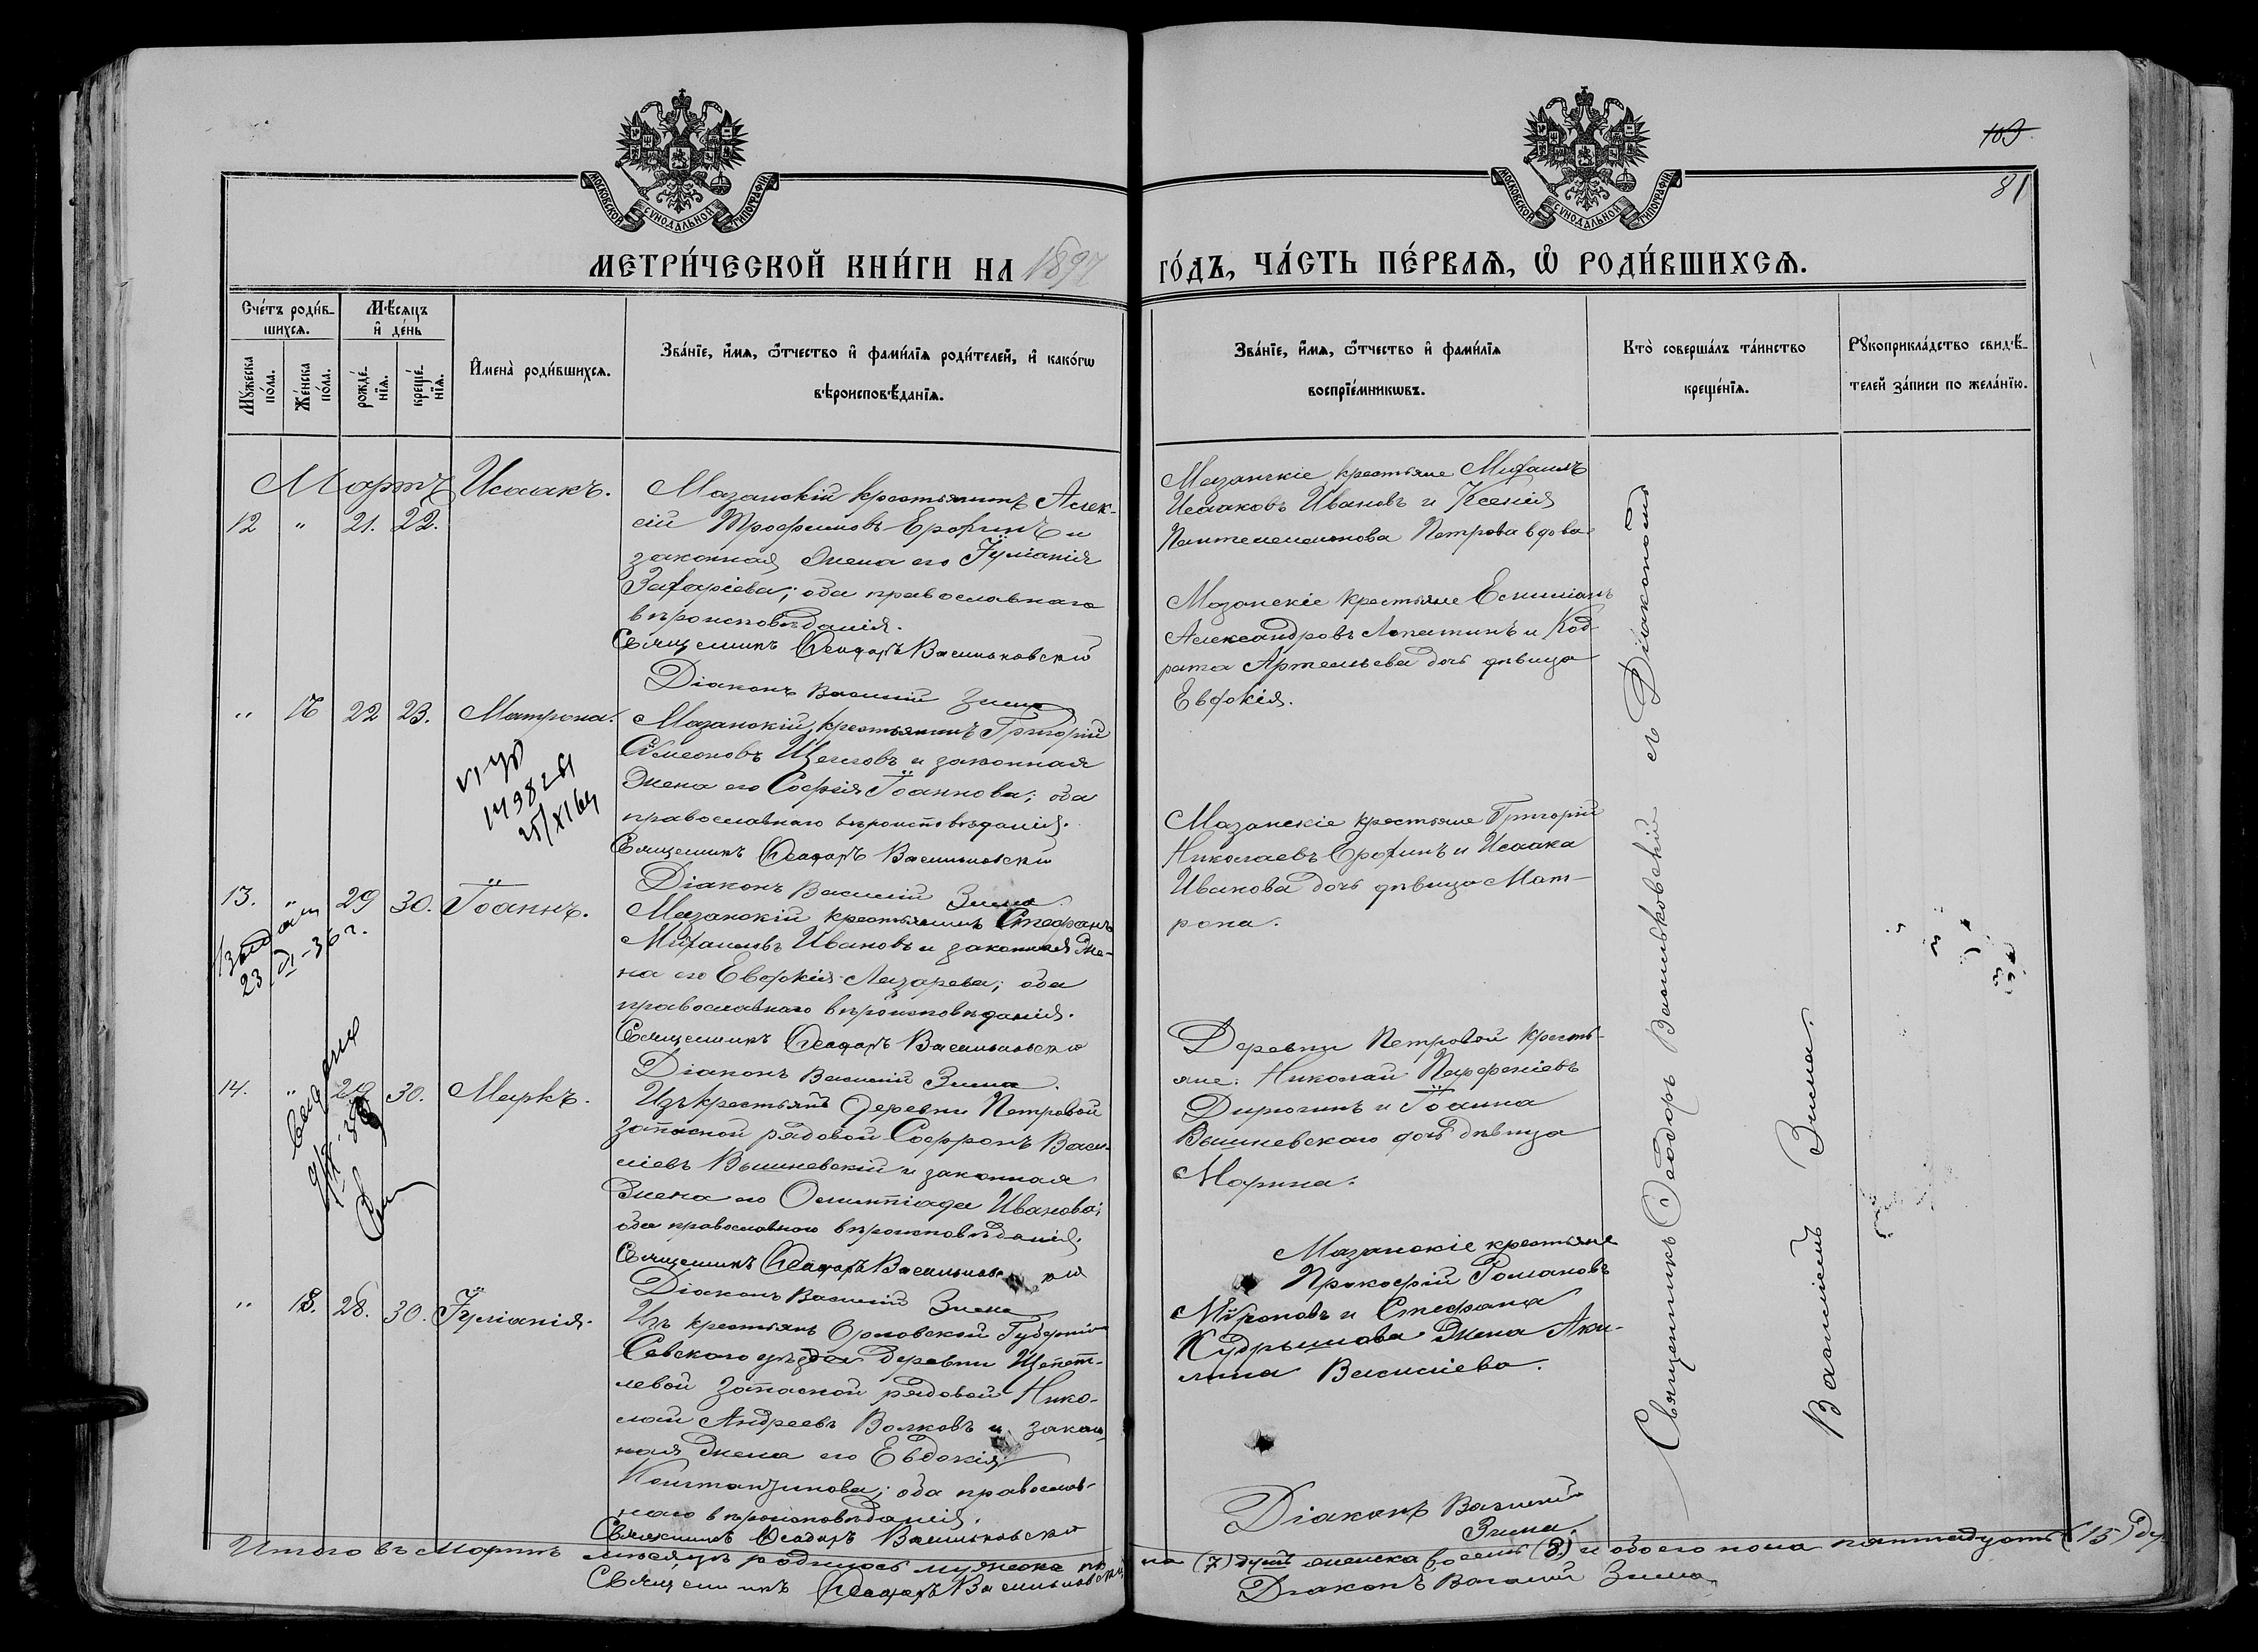 103
81
МОСКОВСКОЙ СѴНОДАЛЬНОЙ ТИПОГРАФІИ
МОСКОВСКОЙ СѴНОДАЛЬНОЙ ТИПОГРАФІИ
МЕТРИ́ЧЕСКОЙ КНИ́ГИ НА 1897 ГО́ДЪ, ЧА́СТЬ ПЕ́РВАѦ, Ѡ РОДИ́ВШИХСѦ.
Сче́тъ роди́в-
шихсѧ.
Мꙋ́жеска по́ла.
Же́нска по́ла.
Мѣ́сѧцъ
и҆ де́нь
рожде́-
нїѧ.
креще́-
нїѧ.
И҆мена̀ роди́вшихсѧ.
Зва́нїе, и҆́мѧ, ѻ҆́тчество и҆ фамѝлїѧ роди́телей, и҆ како́гѡ
вѣроисповѣ́данїѧ.
Зва́нїе, и҆́мѧ, ѻ҆́тчество и҆ фамѝлїѧ
воспрїе́мникѡвъ.
Кто̀ соверша́лъ та́инство
креще́нїѧ.
Рꙋкоприкла́дство свидѣ́-
телей за́писи по жела́нїю.
Мартъ
12 " 21. 22. Исаакъ.
Мазанскій крестьянинъ Алек-
сій Трофимовъ Ерохинъ и
законная жена его Іуліанія
Захаріева; оба православнаго
вѣроисповѣданія.
Священникъ Ѳеодоръ Васильковскій
Діаконъ Василій Зима
Мазанскіе крестьяне Михаилъ
Исааковъ Ивановъ и Ксенія
Пантелеимонова Петрова вдова.
" 22 23. Матрона.
Мазанскій крестьянинъ Григорій
Сѵмеоновъ Щегловъ и законная
жена его Софія Іоаннова; оба
православнаго вѣроисповѣданія.
Священникъ Ѳеодоръ Васильковскій
Діаконъ Василій Зима
Мазанскіе крестьяне Емиліанъ
Александровъ Лопатинъ и Код-
рата Артемьева дочь дѣвица
Евдокія.
13. " 29 30. Іоаннъ.
23/VI-36 г.
Мазанскій крестьянинъ Стефанъ
Михаиловъ Ивановъ и законная же-
на его Евдокія Лазарева; оба
православнаго вѣроисповѣданія.
Священникъ Ѳеодоръ Васильковскій
Діаконъ Василій Зима.
Мазанскіе крестьяне Григорій
Николаевъ Ерохинъ и Исаака
Иванова дочь дѣвица Мат-
рона.
14. " 29 30. Маркъ.
Изъ крестьянъ деревни Петровой
запасной рядовой Софронъ Васи-
ліевъ Вышневскій и законная
жена его Олимпіада Иванова;
оба православнаго вѣроисповѣданія.
Священникъ Ѳеодоръ Васильковскій
Діаконъ Василій Зима
Деревни Петровой кресть-
яне: Николай Парфеніевъ
и Іоанна
Вышневскаго дочь дѣвица
Марина.
" 18. 28. 30. Іуліанія.
Изъ крестьянъ Орловской Губерніи
Севскаго уѣзда деревни
запасной рядовой Нико-
лай Андреевъ Волковъ и закон-
ная жена его Евдокія
Константинова; оба православ-
наго вѣроисповѣданія.
Священникъ Ѳеодоръ Васильковскій
Мазанскіе крестьяне
Прокофій Романовъ
Мѵроновъ и Стефана
Кудрышова жена Аки-
лина Василіева.
Діаконъ Василій
Зима.
Священникъ Ѳеодоръ Васильковскій съ Діакономъ
Василіемъ Зима.
Итого въ Мартѣ мѣсяцѣ родилось мужеска по-
ла (7) душъ женска восемь (8) и обоего пола пятнадцать (15) ду-
Священникъ Ѳеодоръ Васильковскій
Діаконъ Василій Зима